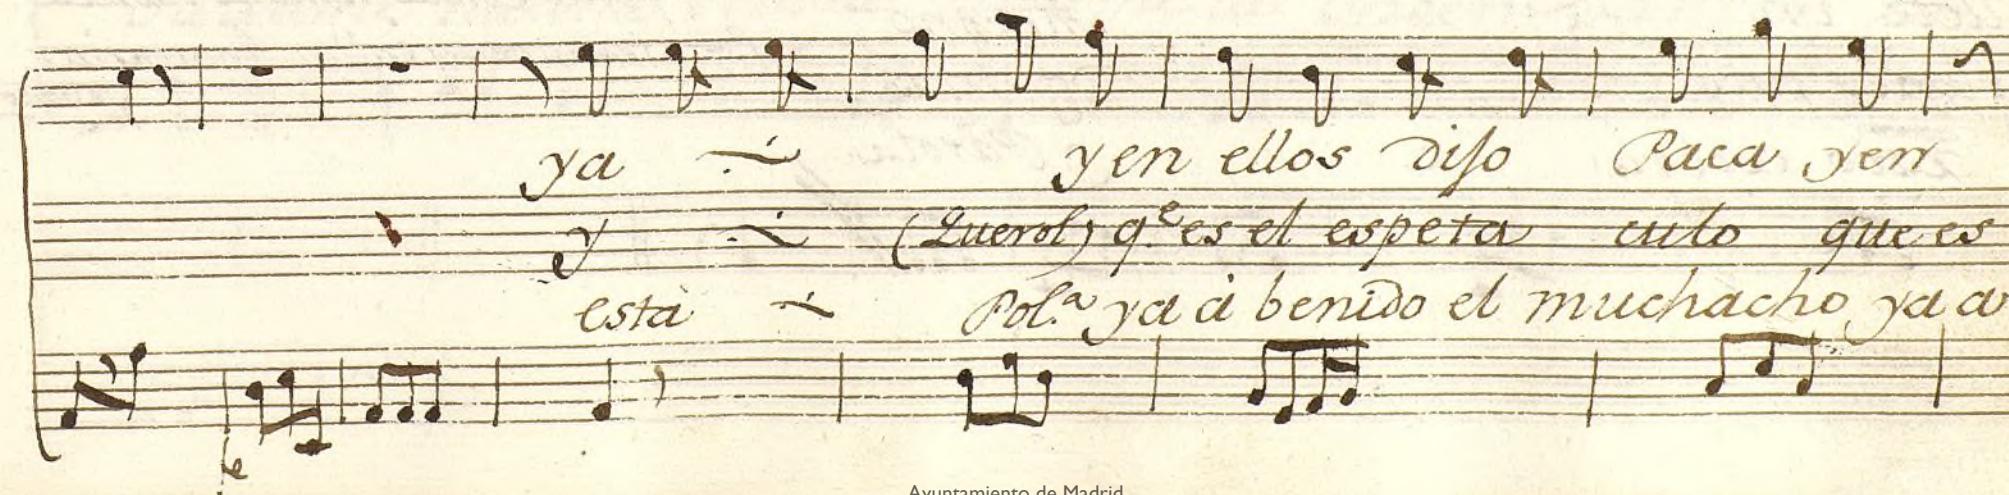 ya yen ellos diſo Paca yen
y (Querol) q.e es el espeta culo que es
està Pol.a ya à benido el muchacho ya a
Ayuntamiento de Madrid